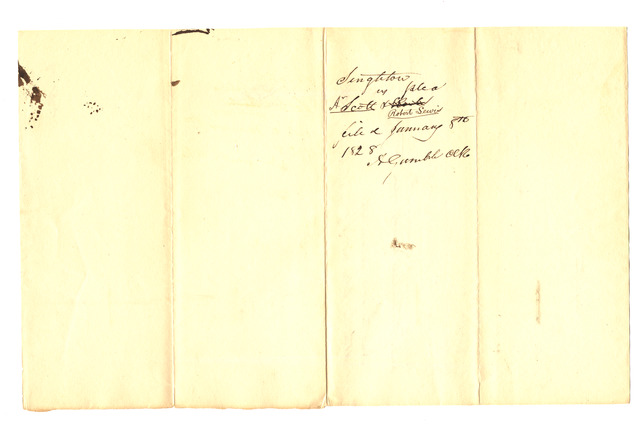 Singleton
vs Plea
A Scott &
Robert Lewis
filed January 8th
1828
A Gamble Clk